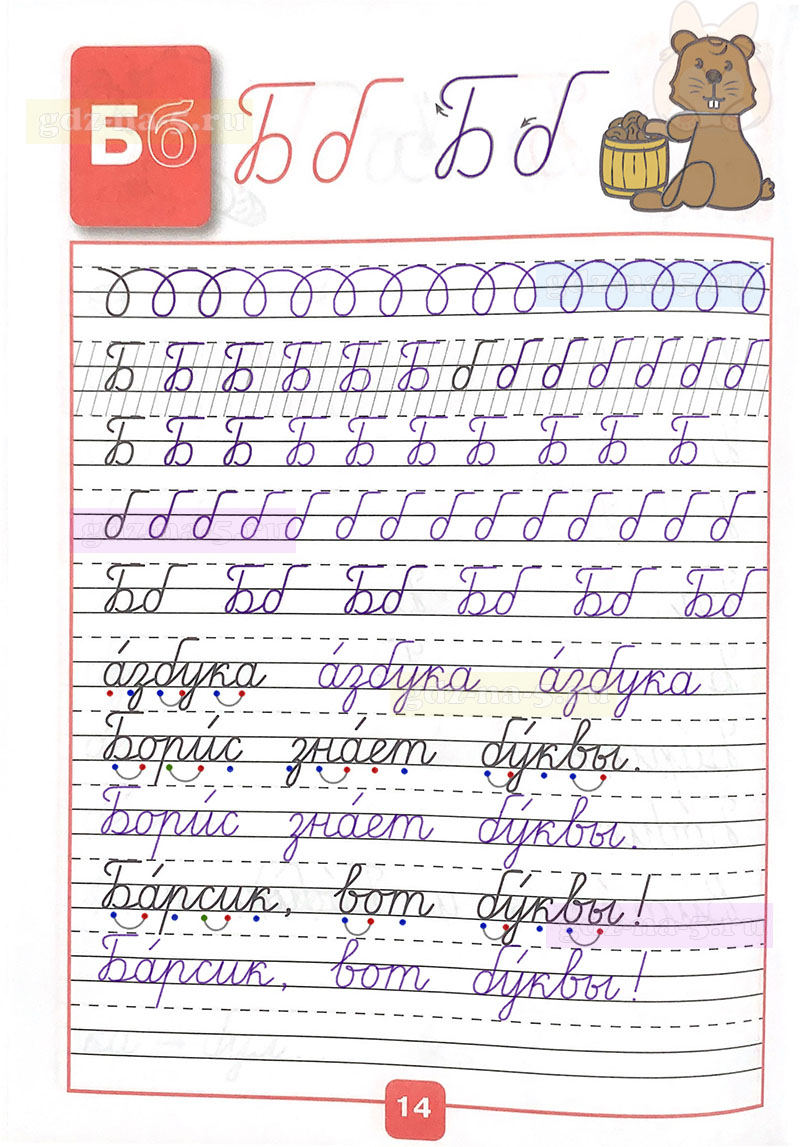 Бб Б б Б б
Б Б Б Б Б Б б б б б б б б
Б Б Б Б Б Б Б Б Б Б
б б б б б б б б б б б б б б
Бб Бб Бб Бб Бб Бб
а́збука а́збука а́збука
Бори́с зна́ет бу́квы.
Бори́с зна́ет бу́квы.
Ба́рсик, вот бу́квы!
Ба́рсик, вот бу́квы!
14
gdz-na-5.ru
gdz-na-5.ru
gdz-na-5.ru
gdz-na-5.ru
gdz-na-5.ru